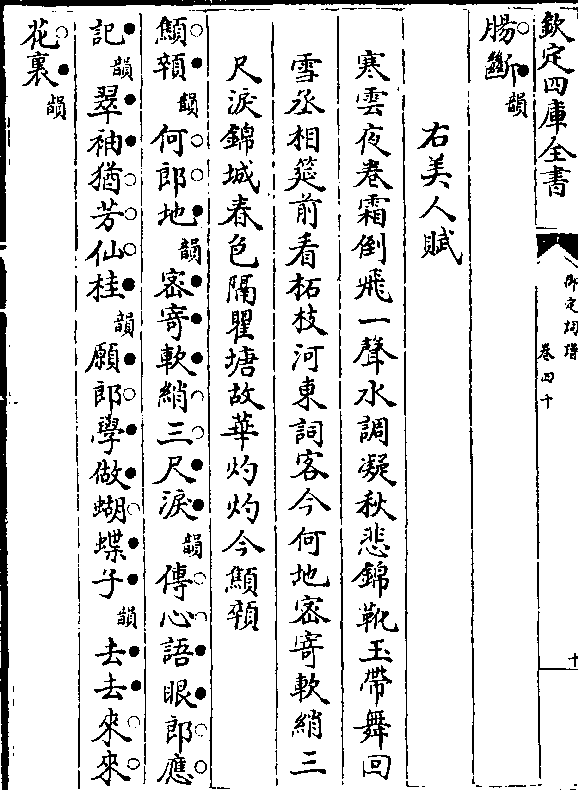 欽定四庫全書
御定詞譜
卷四十
十
腸斷韻
右美人賦
寒雲夜卷霜倒飛一聲水調凝秋悲錦靴玉帶舞回
雪丞相筵前看柘枝河東詞客今何地密寄軟綃三
尺淚錦城春色隔瞿塘故華灼灼今顦顇
顦顇韻何郎地韻密寄軟綃三尺淚韻傳心語眼郎應
記韻翠袖猶芳仙桂韻願郎學做蝴蝶子韻去去來來
花裏韻